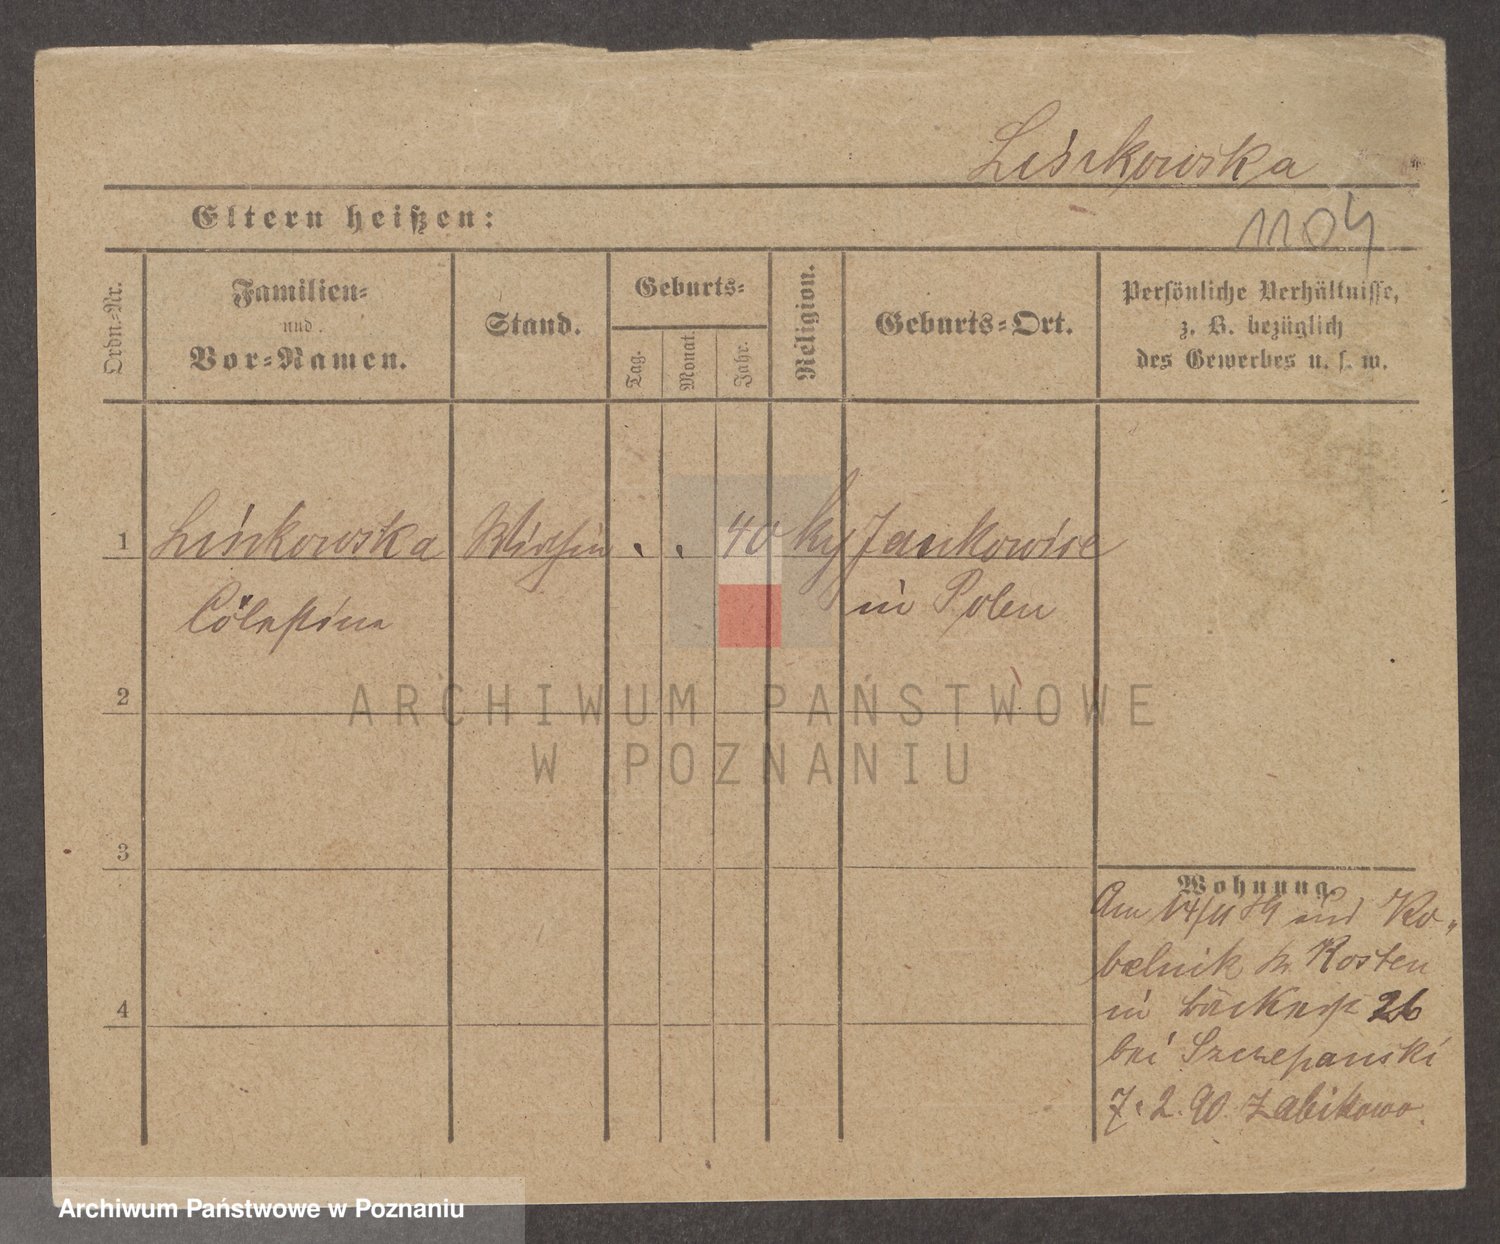 Liszkowska
Eltern heißen:
1104
Ordn.-Nr.
Familien-
und
Vor-Namen.
Stand.
Geburts-
Tag.
Monat.
Jahr.
Religion.
Geburts-Ort.
Persönliche Verhältnisse,
z. B. bezüglich
des Gewerbes u. s. w.
1 Liszkowska 40 Jankowice
Cölestine in Polen
2
3
4
Wohnung.
Am 14/11 89 aus Ko-
belnik Kosten
in Bäckerstr 26
bei Szczepanski
7.2.90 Zabikowo
ARCHIWUM PAŃSTWOWE
W POZNANIU
Archiwum Państwowe w Poznaniu